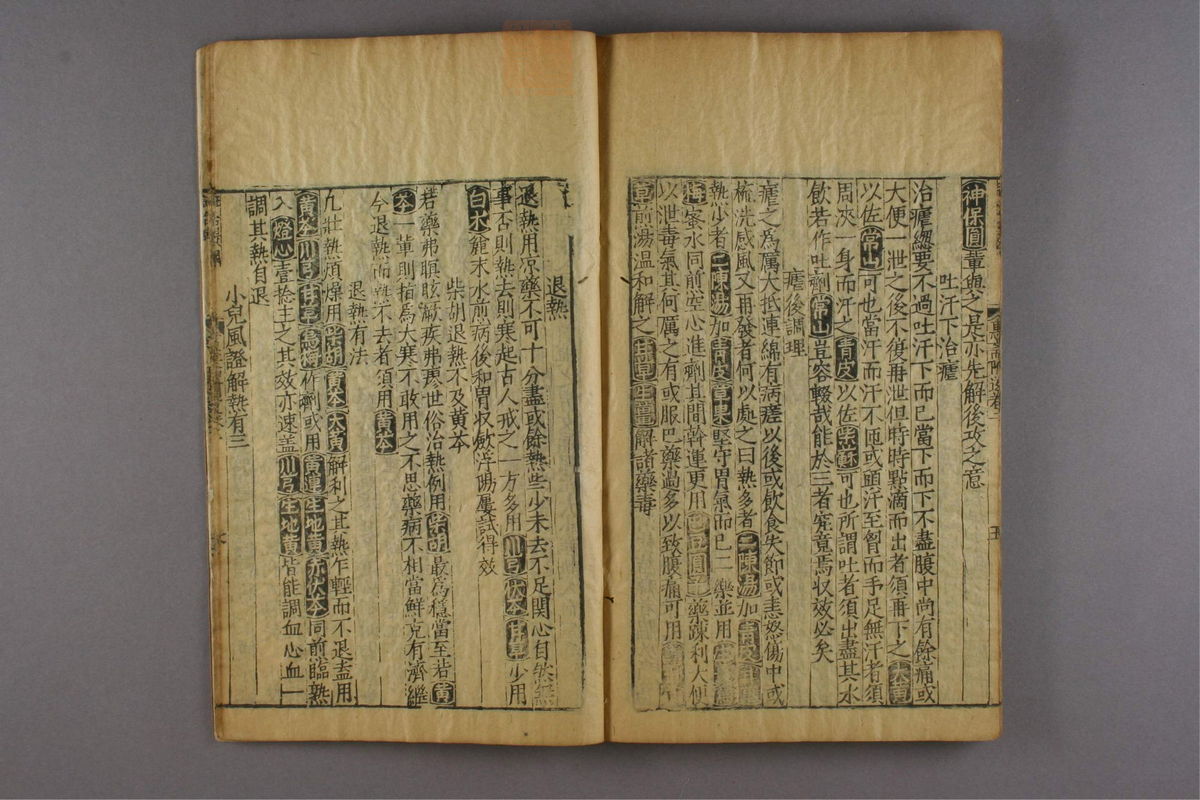 神保圓童與之是亦先解後攻之意
吐汗下治瘧
治瘧緫要不過吐汗下而已當下而下不盡腹中尚有餘痛或
大便一泄之後不復再泄但時時點滴而出者須再下之大黃
以佐常山可也當汗而汗不匝或頭汗至胷而手足無汗者須
周浹一身而汗之青皮以佐柴蘇可也所謂吐者須出盡其水
飲若作吐劑常山豈容輟哉能於三者䆒竟焉収效必矣
瘧後調理
瘧之爲厲大抵連綿有病瘥以後或飲食失節或恚怒傷中或
梳洗感風又再發者何以處之曰熱多者二陳湯加青皮
熱少者二陳湯加青皮草果堅守胃氣而已二藥並用
梅蜜水同前空心進劑其間幹運更用藥踈利大便
以泄毒氣其何厲之有或服巴藥過多以致腹痛可用
草前湯温和解之甘草生薑解諸藥毒
退熱
退熱用凉藥不可十分盡或餘熱些少未去不足関心自然無
事否則熱去則寒起古人戒之一方多用川芎伏苓甘草少用
白朮麄末水煎病後和胃収斂浮陽屢試得效
柴胡退熱不及黃芩
若藥弗瞑眩厥疾弗瘳世俗治熱例用柴胡最爲穩當至若黃
芩一軰則指爲大寒不敢用之不思藥病不相當鮮克有濟繼
今退熱而熱不去者須用黃芩
退熱有法
九壯熱煩燥用柴胡黃芩大黃解利之其熱乍輕而不退盍用
黃芩川芎甘草烏梅作劑或用黃連生地黃赤伏苓同前臨熟
入燈心壹捻主之其效亦速盖川芎生地黃皆能調血心血一
調其熱自退
小兒風證解熱有三